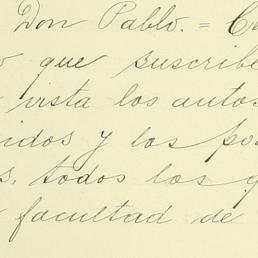 Don Pablo. = C
o que suscribe
vista los autos
idos y los po
s, todos los q
facultad de